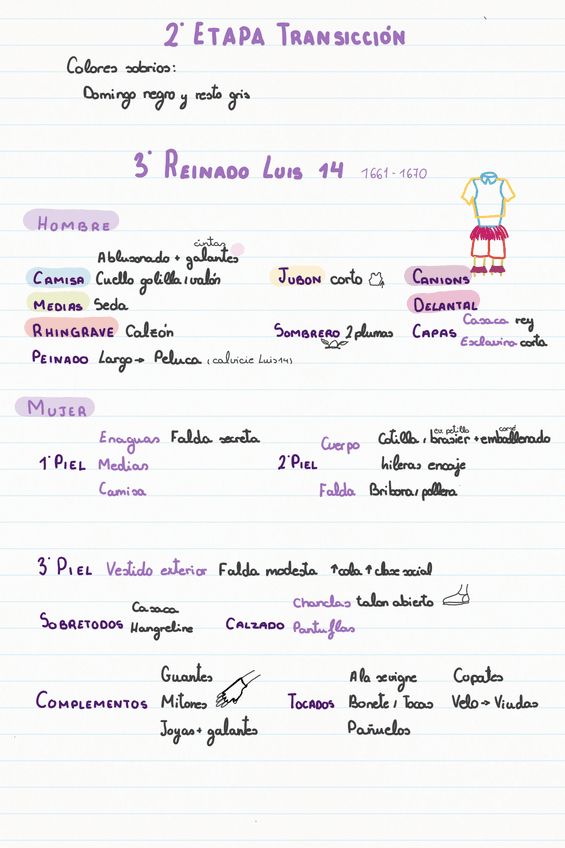 2ª ETAPA TRANSICCIÓN
Colores sobrios:
Domingo negro y resto gris
3ª REINADO LUIS 14 1661-1670
HOMBRE
cintas
Ablusonado + galantes
CAMISA Cuello golilla / valón JUBON corto CANIONS
MEDIAS Seda DELANTAL
RHINGRAVE Calzón SOMBRERO 2 plumas CAPAS Casaca rey
Esclavina corta
PEINADO Largo → Peluca (calvicie Luis 14)
MUJER
Enaguas Falda secreta
1ª PIEL Medias
Camisa
2ª PIEL
Cuerpo Cotilla / brasier + emballenado
hileras encaje
Falda Bribora / pollera
3ª PIEL Vestido exterior Falda modesta ↑cola ↑clase social
SOBRETODOS Casaca
Hongreline
CALZADO Chanclas talon abierto
Pantuflas
COMPLEMENTOS Guantes
Mitones
Joyas + galantes
TOCADOS A la sevigre Copates
Bonete / Tocas Velo → Viudas
Pañuelos